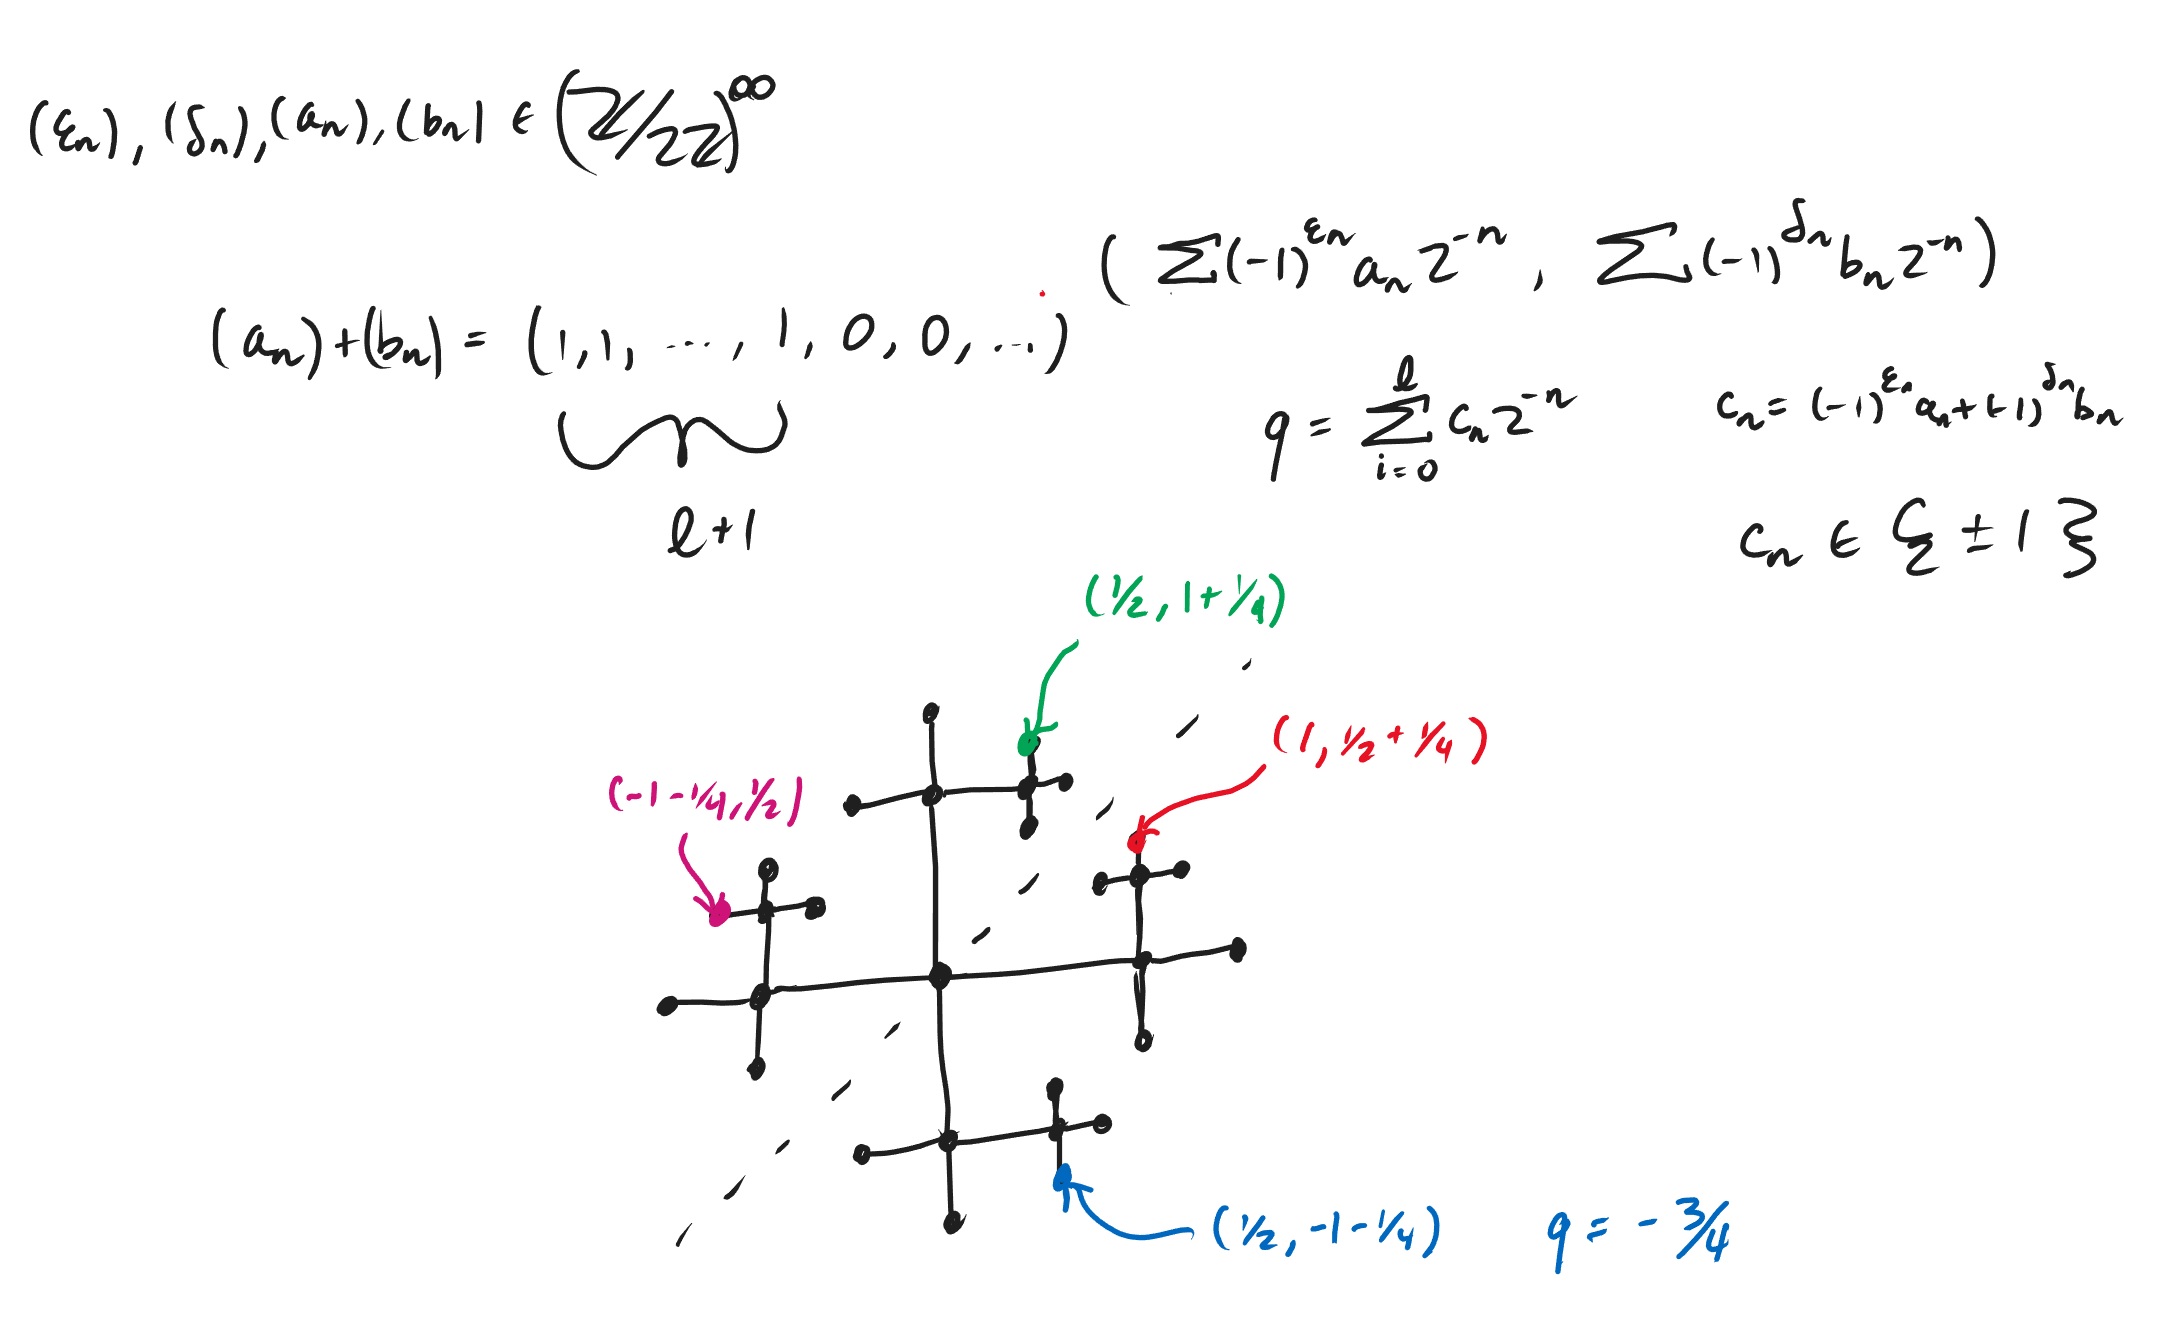 (εₙ), (δₙ), (aₙ), (bₙ) ∈ (ℤ/2ℤ)^∞
( Σ(-1)^{εₙ} aₙ 2^{-n} , Σ(-1)^{δₙ} bₙ 2^{-n} )
(aₙ)+(bₙ) = (1,1, ..., 1, 0, 0, ...)
l+1
q = Σ_{i=0}^{l} cₙ 2^{-n}
cₙ = (-1)^{εₙ} aₙ + (-1)^{δₙ} bₙ
cₙ ∈ { ±1 }
(1/2, 1+1/4)
(1, 1/2+1/4)
(-1-1/4, 1/2)
(1/2, -1-1/4)
q = -3/4